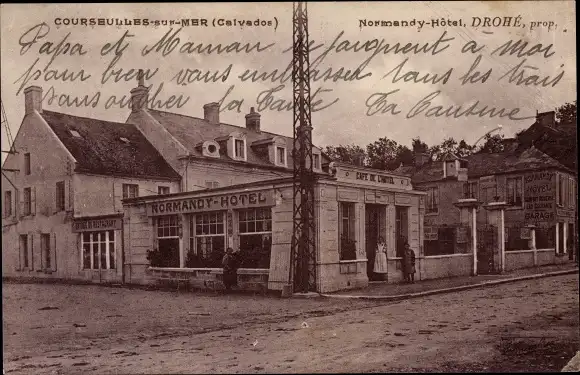 COURSEULLES-SUR-MER (Calvados)
Normandy-Hôtel, DROHÉ, prop.
Papa et Maman se joignent à moi
pour bien vous embrasser tous les trois
sans oublier la Tante
Ta Cousine
CAFE DE L'HOTEL
NORMANDY-HÔTEL
GARAGE